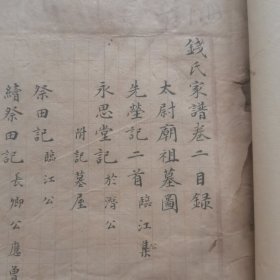 錢氏家譜卷二目録
太尉廟祖墓圖
先塋記二首 臨江集公
永思堂記 於濳公
附記墓屋
祭田記 臨江公
續祭田記 長卿公應曾